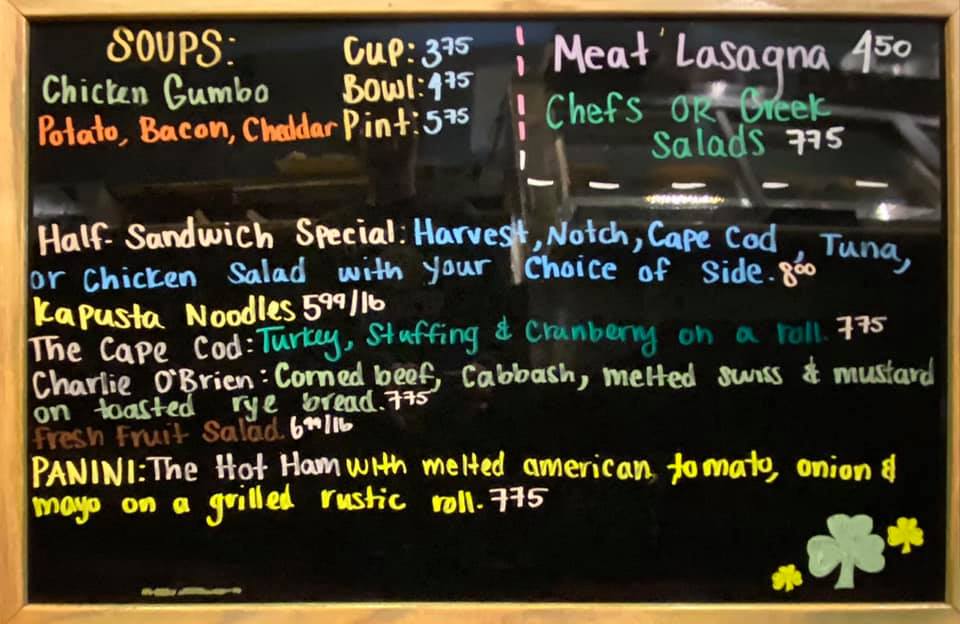 SOUPS:
Chicken Gumbo
Potato, Bacon, Cheddar
Cup: 375
Bowl: 475
Pint: 575
Meat Lasagna 450
Chefs OR Greek
Salads 775
Half-Sandwich Special: Harvest, Notch, Cape Cod, Tuna,
or Chicken Salad with your Choice of Side. 800
Kapusta Noodles 599/lb
The Cape Cod: Turkey, Stuffing & Cranberry on a roll. 775
Charlie O'Brien: Corned beef, Cabbash, melted swiss & mustard
on toasted rye bread. 775
Fresh Fruit Salad 699/lb
PANINI: The Hot Ham with melted american, tomato, onion &
mayo on a grilled rustic roll. 775